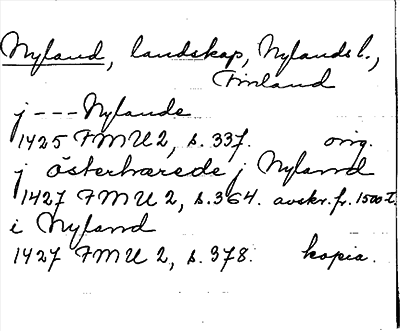 Nyland, landskap, Nylands l.,
Finland
j --- Nylande
1425 FMU 2, s. 337. orig.
j österhærede j Nyland
1427 FMU 2, s. 364. avskr. fr. 1500-t.
i Nyland
1427 FMU 2, s. 378. kopia.